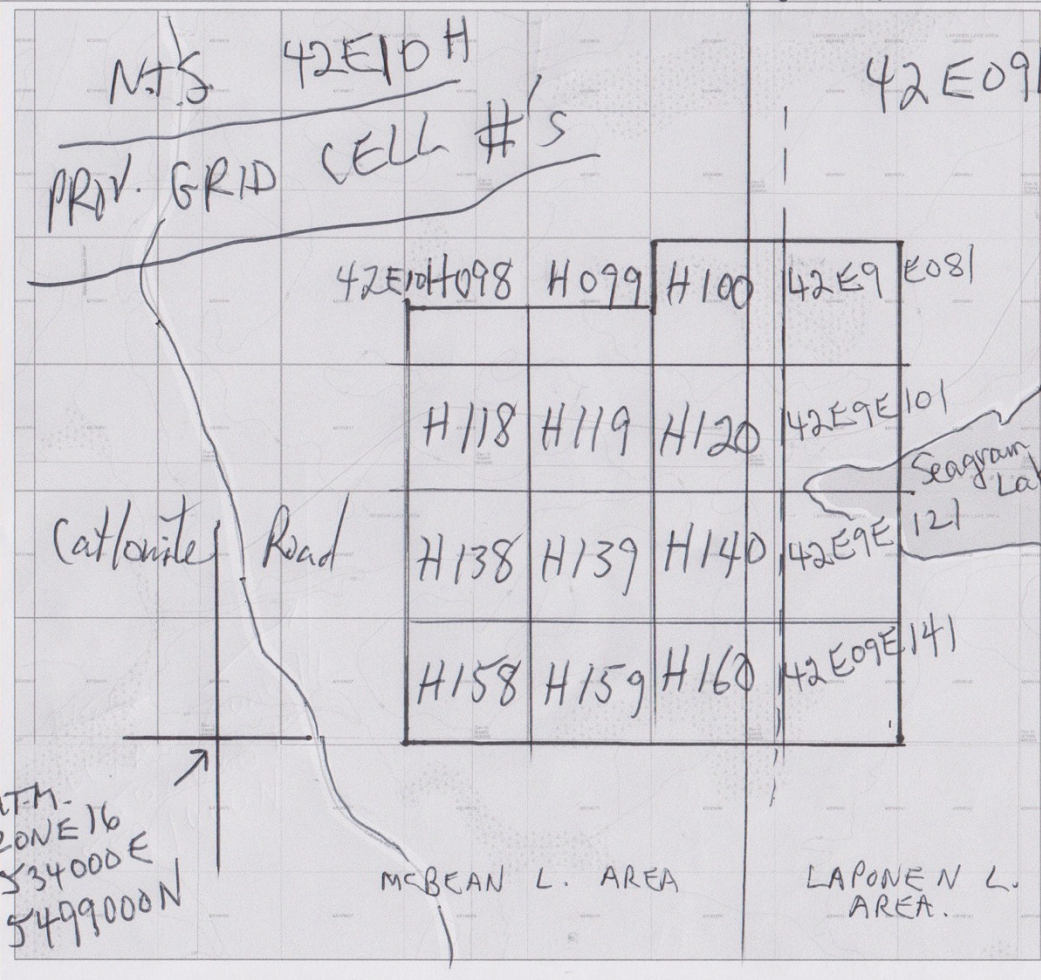 N.T.S. 42E10H
42E09
PROV. GRID CELL #'S
42E10H098 H099 H100 42E9 E081
H118 H119 H120 42E9E 101
Seagram
La
Catlonite Road
H138 H139 H140 42E9E 121
H158 H159 H160 42E09E 141
T.M.
ZONE 16
534000E
5499000N
McBEAN L. AREA
LAPONEN L.
AREA.